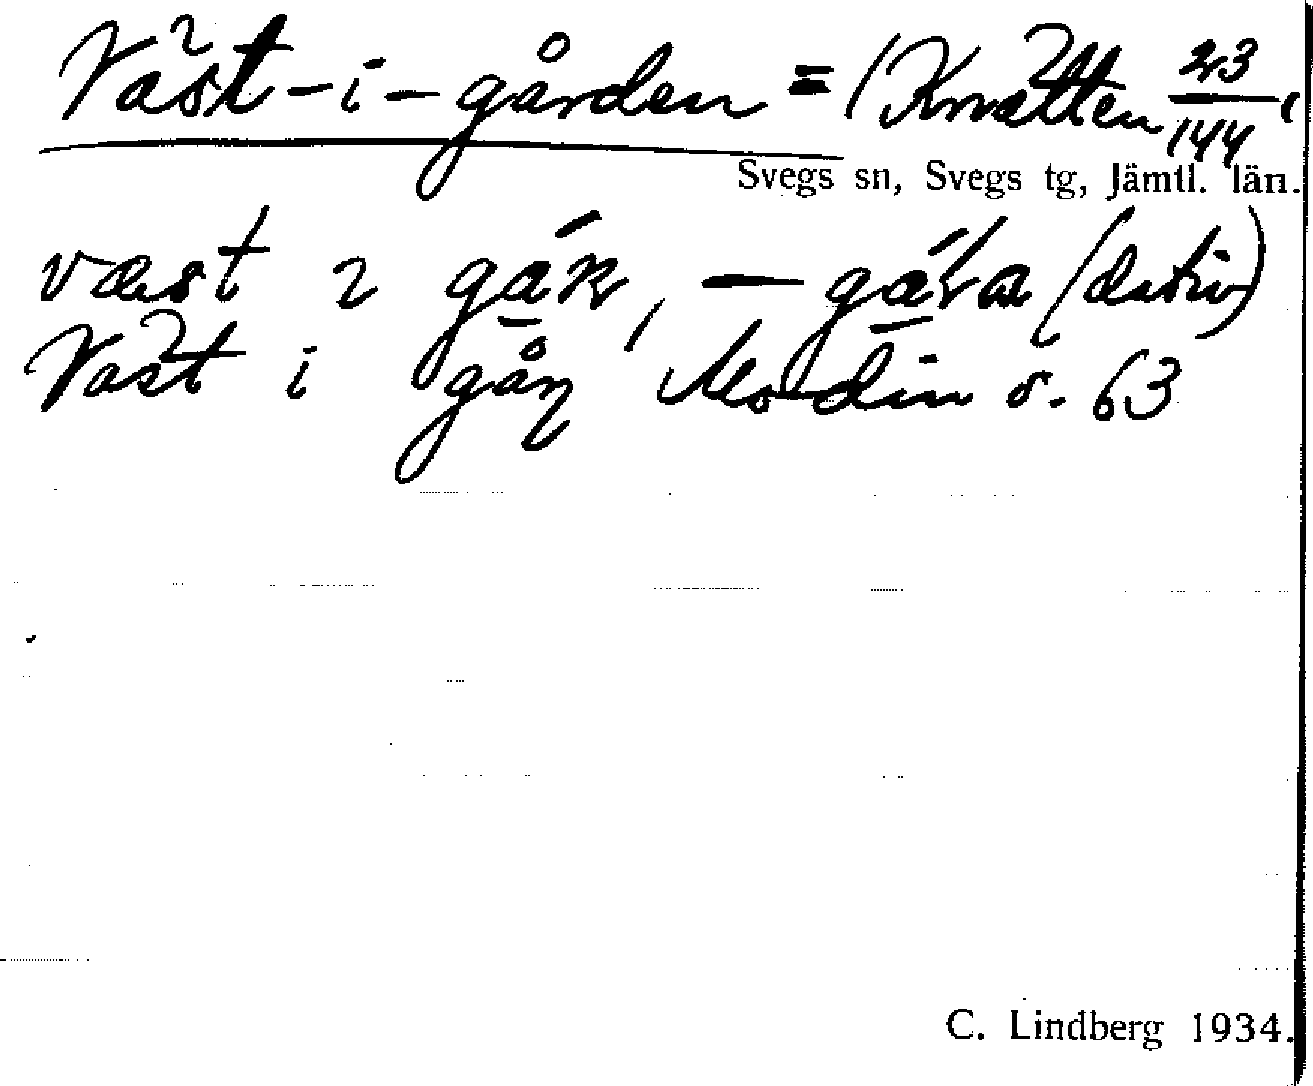 Väst-i-gården = (Kvätten 23/144)
Svegs sn, Svegs tg, Jämtl. län.
væst i
(dativ)
Väst i gåɳ Modin s. 63
C. Lindberg 1934.